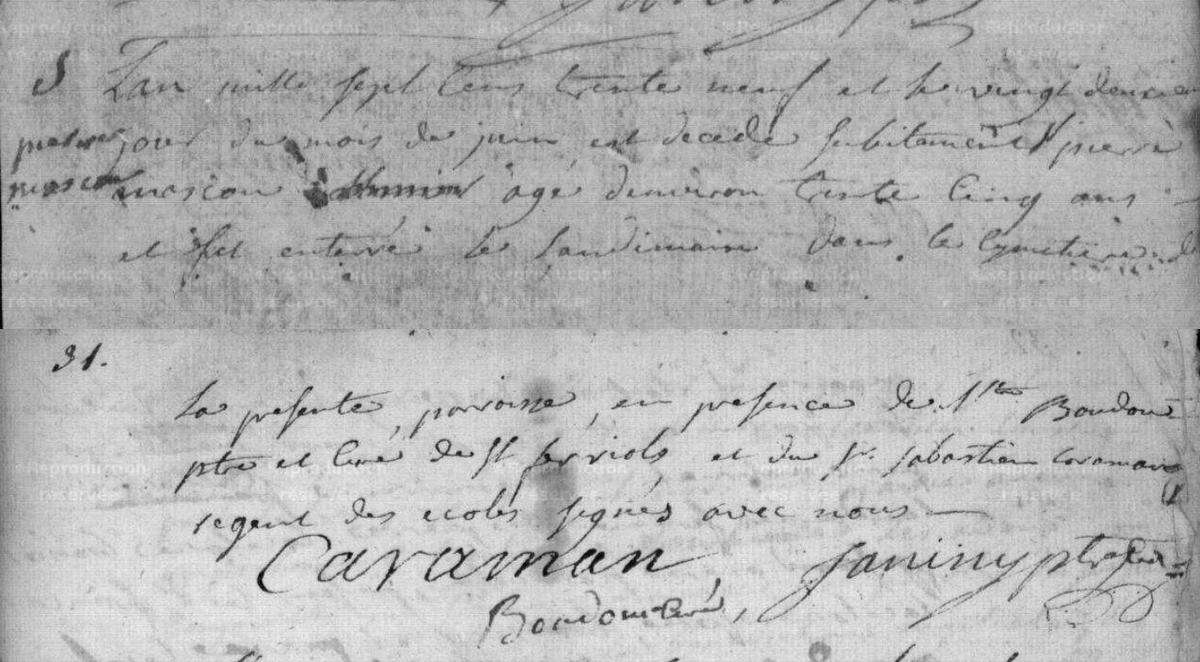 S Lan mille sept cens trente neuf et le vingt deux
pierre jour du mois de juin est decedé subitament pierre
mascou mascou agé denviron trente cinq ans
et fut enterré le landimain dans le cymetiere d
31.
La presente parroisse, en presence de Boudou
ptre et curé de St ferriols et du Sr. sabastien caraman
regent des ecoles signés avec nous
Caraman, Saniny ptre
Boudou curé,